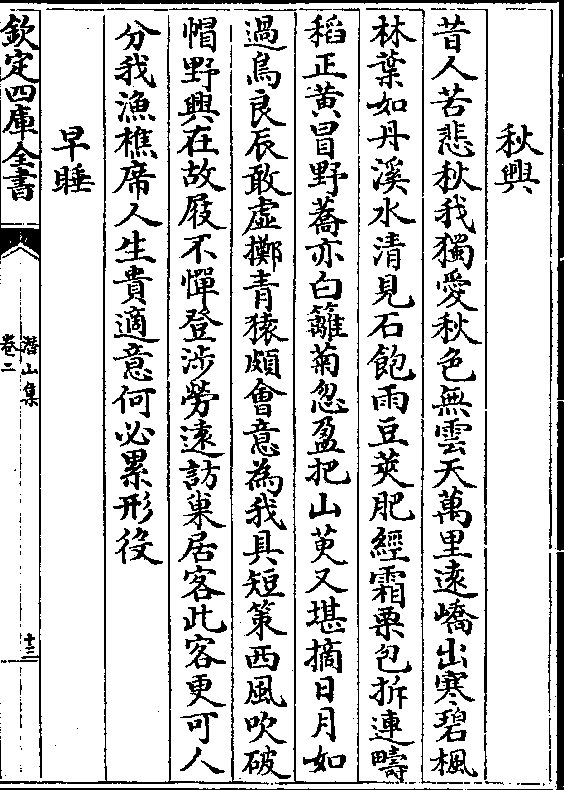 秋興
昔人苦悲秋我獨愛秋色無雲天萬里遠嶠出寒碧楓
林葉如丹溪水清見石飽雨豆莢肥經霜栗包拆連疇
稻正黄冒野蕎亦白籬菊忽盈把山萸又堪摘日月如
過鳥良辰敢虛擲青猿頗會意為我具短策西風吹破
帽野興在故屐不憚登涉勞遠訪巢居客此客更可人
分我漁樵席人生貴適意何必累形役
早睡
欽定四庫全書
潛山集
卷二
十三